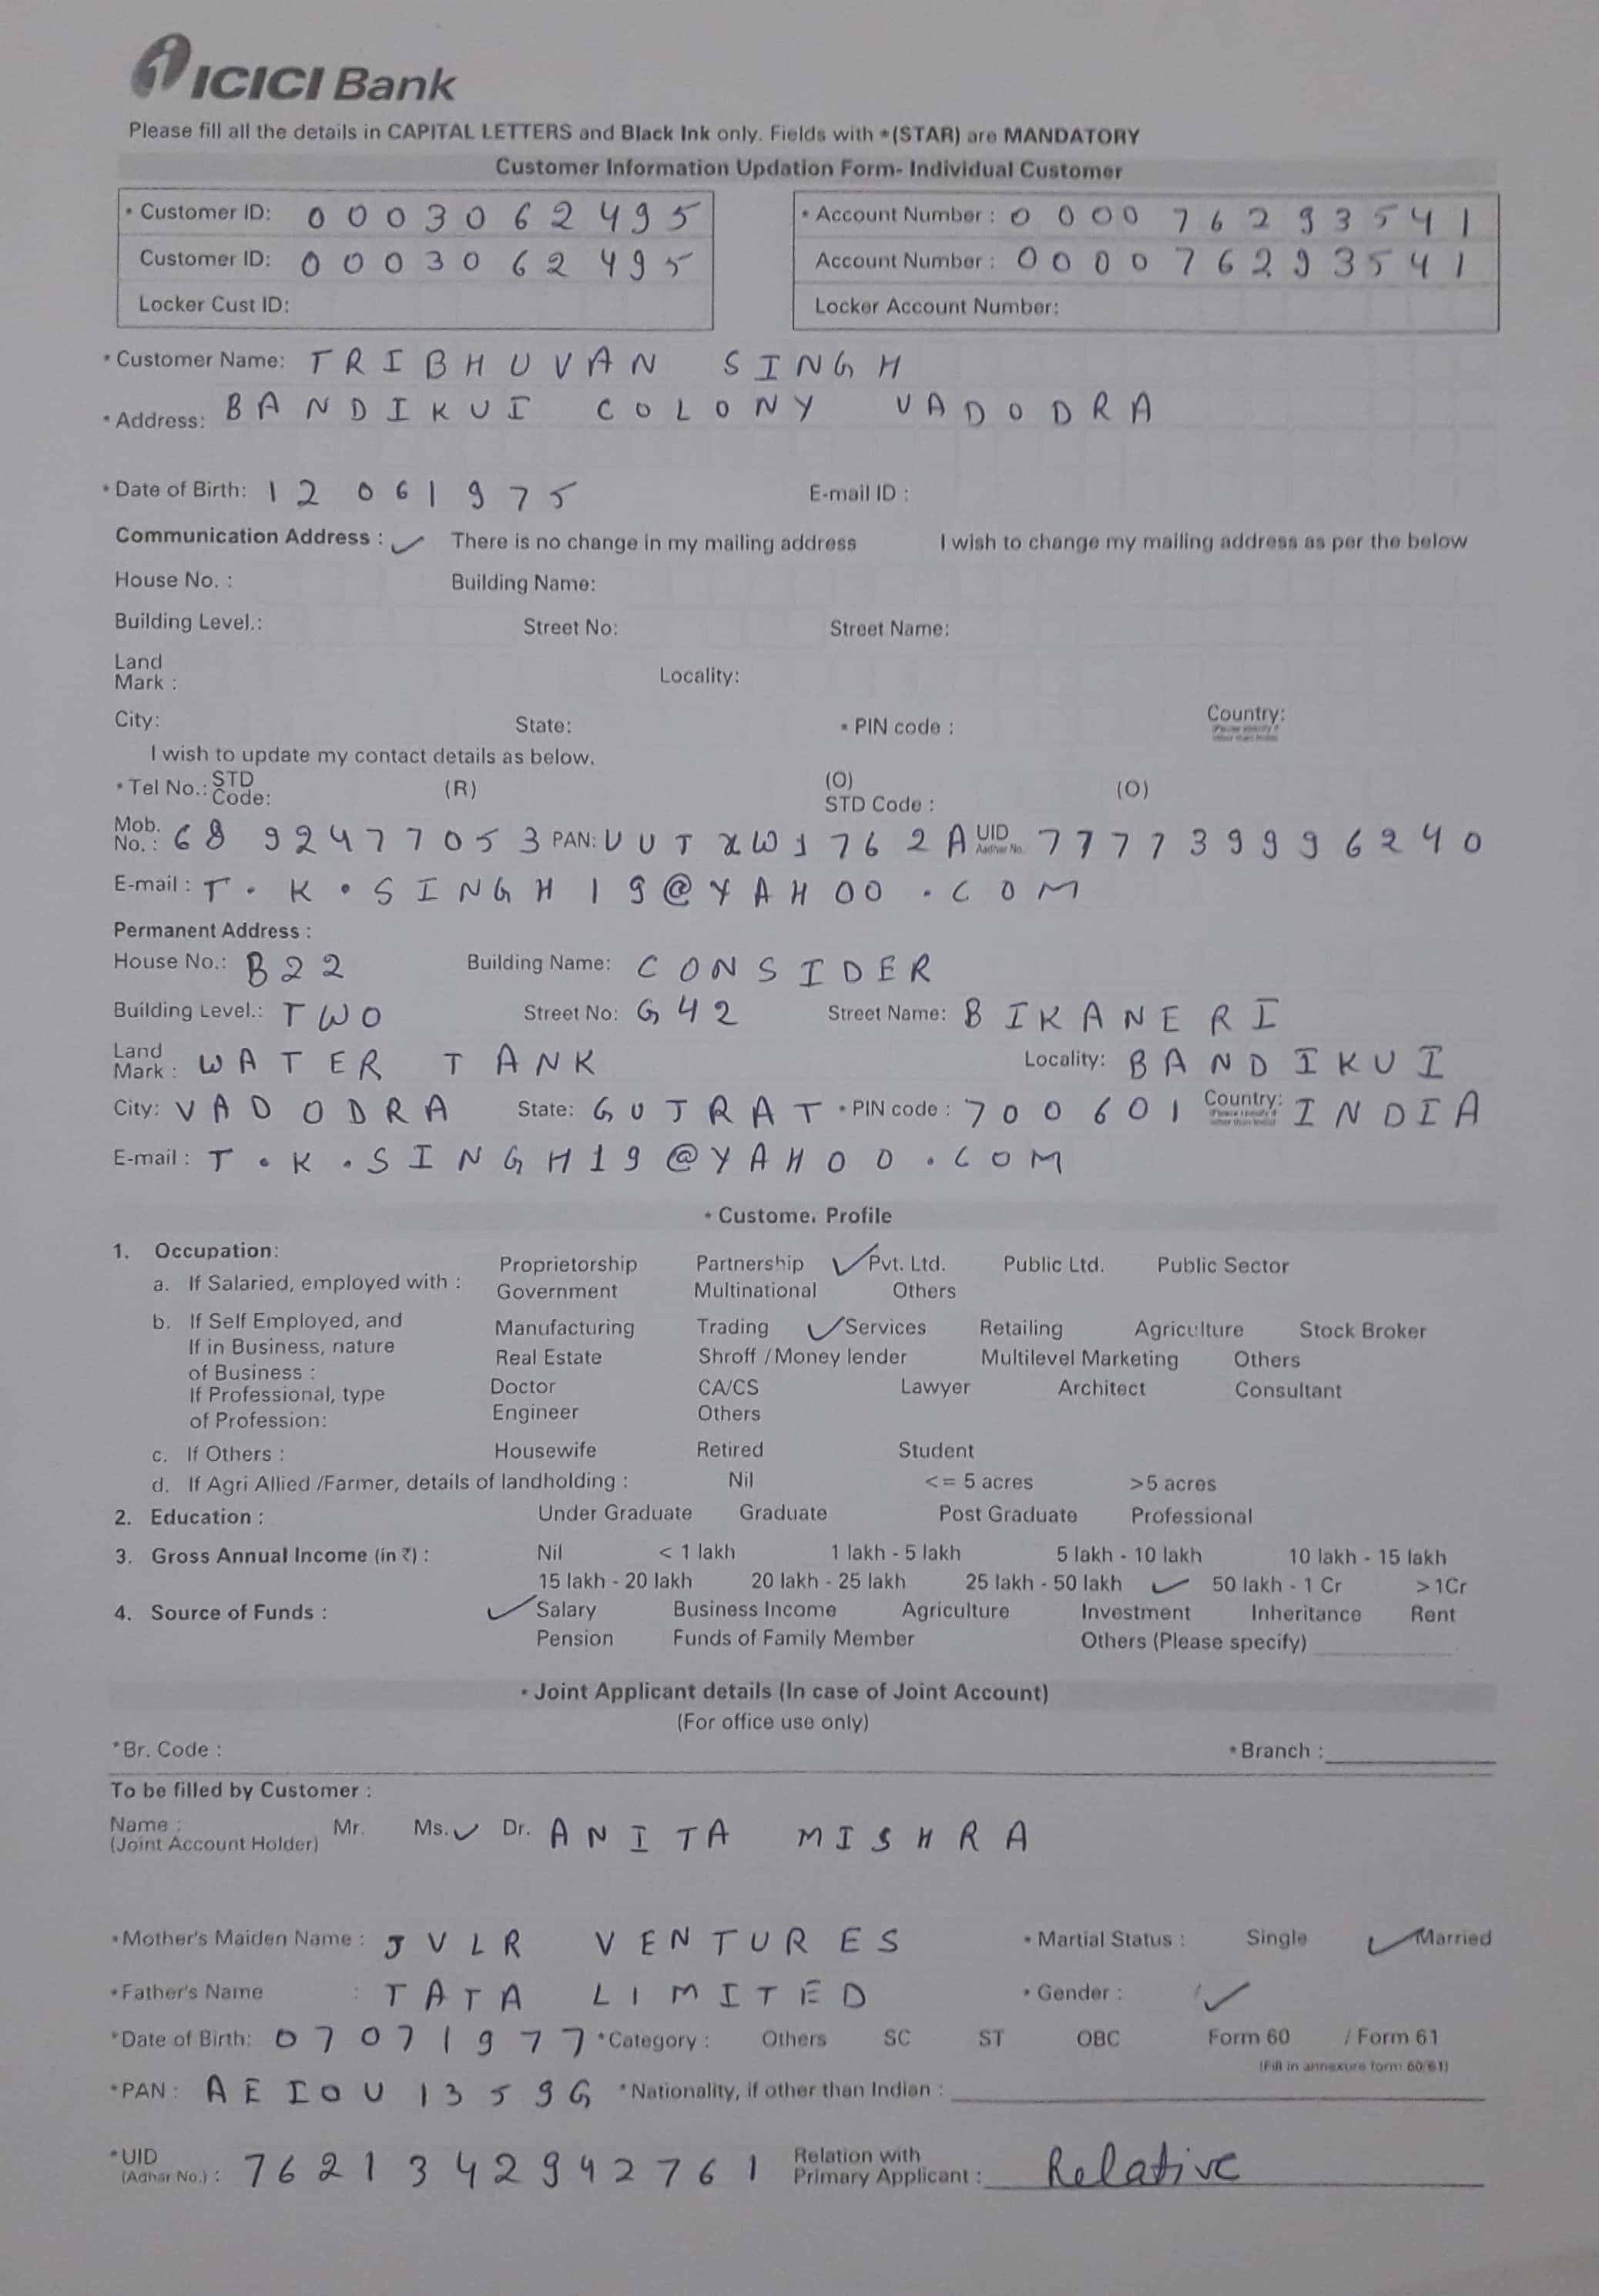 ICICI Bank
Please fill all the details in CAPITAL LETTERS and Black Ink only. Fields with *(STAR) are MANDATORY
Customer Information Updation Form- Individual Customer
* Customer ID: 0003062495 * Account Number : 000076293541
Customer ID: 0003062495 Account Number : 000076293541
Locker Cust ID: Locker Account Number:
* Customer Name: TRIBHUVAN SINGH
* Address: BANDIKUI COLONY VADODRA
* Date of Birth: 12061975 E-mail ID :
Communication Address : ✓ There is no change in my mailing address I wish to change my mailing address as per the below
House No. : Building Name:
Building Level.: Street No: Street Name:
Land Mark : Locality:
City: State: * PIN code : Country: (Please specify if other than India)
I wish to update my contact details as below.
* Tel No.: STD Code: (R) (O) STD Code : (O)
Mob. No. : 6892477053 PAN: UUTXW1762A UID Aadhar No. 777739996240
E-mail : T.K.SINGH19@YAHOO.COM
Permanent Address :
House No.: B22 Building Name: CONSIDER
Building Level.: TWO Street No: G42 Street Name: BIKANERI
Land Mark : WATER TANK Locality: BANDIKUI
City: VADODRA State: GUJRAT * PIN code : 700601 Country: (Please specify if other than India) INDIA
E-mail : T.K.SINGH19@YAHOO.COM
* Custome. Profile
1. Occupation:
a. If Salaried, employed with : Proprietorship Partnership ✓ Pvt. Ltd. Public Ltd. Public Sector
Government Multinational Others
b. If Self Employed, and If in Business, nature of Business : Manufacturing Trading ✓ Services Retailing Agriculture Stock Broker
Real Estate Shroff / Money lender Multilevel Marketing Others
If Professional, type of Profession: Doctor CA/CS Lawyer Architect Consultant
Engineer Others
c. If Others : Housewife Retired Student
d. If Agri Allied /Farmer, details of landholding : Nil <= 5 acres >5 acres
2. Education : Under Graduate Graduate Post Graduate Professional
3. Gross Annual Income (in ₹) : Nil < 1 lakh 1 lakh - 5 lakh 5 lakh - 10 lakh 10 lakh - 15 lakh
15 lakh - 20 lakh 20 lakh - 25 lakh 25 lakh - 50 lakh ✓ 50 lakh - 1 Cr >1Cr
4. Source of Funds : ✓ Salary Business Income Agriculture Investment Inheritance Rent
Pension Funds of Family Member Others (Please specify)
* Joint Applicant details (In case of Joint Account)
(For office use only)
*Br. Code : * Branch :
To be filled by Customer :
Name : (Joint Account Holder) Mr. Ms. ✓ Dr. ANITA MISHRA
*Mother's Maiden Name : JVLR VENTURES * Martial Status : Single ✓ Married
*Father's Name : TATA LIMITED * Gender : ✓
*Date of Birth: 07071977 *Category : Others SC ST OBC Form 60 / Form 61
(Fill in annexure form 60/61)
*PAN : AEIOU1359G *Nationality, if other than Indian :
*UID (Adhar No.) : 7621342942761 Relation with Primary Applicant : Relative